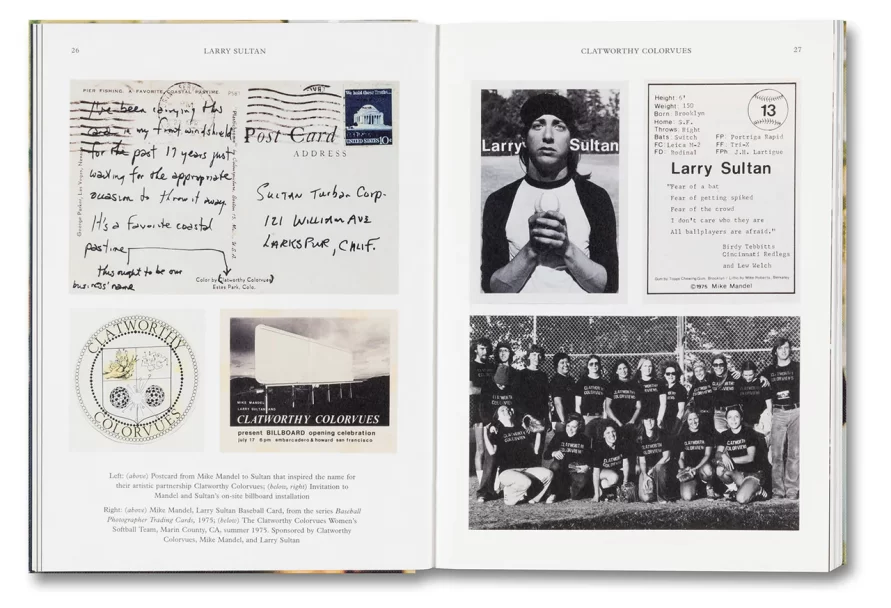 26
LARRY SULTAN
PIER FISHING. A FAVORITE COASTAL PASTIME
I've been carrying this
card in my front windshield
for the past 17 years just
waiting for the appropriate
occasion to throw it away.
It's a favorite coastal
pastime
this ought to be our
business' name
Color by Clatworthy Colorvues
Estes Park, Colo.
We hold these Truths...
UNITED STATES 10c
Post Card
ADDRESS
SULTAN Turban Corp.
121 WILLIAM AVE
LARKSPUR, CALIF.
CLATWORTHY
COLORVUES
MIKE MANDEL
LARRY SULTAN
CLATWORTHY COLORVUES
present BILLBOARD opening celebration
july 17 6 pm embarcadero & howard san francisco
Left: (above) Postcard from Mike Mandel to Sultan that inspired the name for
their artistic partnership Clatworthy Colorvues; (below, right) Invitation to
Mandel and Sultan's on-site billboard installation
Right: (above) Mike Mandel, Larry Sultan Baseball Card, from the series Baseball
Photographer Trading Cards, 1975; (below) The Clatworthy Colorvues Women's
Softball Team, Marin County, CA, summer 1975. Sponsored by Clatworthy
Colorvues, Mike Mandel, and Larry Sultan
CLATWORTHY COLORVUES
27
Larry Sultan
Height: 6'
Weight: 150
Born: Brooklyn
Home: S.F.
Throws: Right
Bats: Switch FP: Portriga Rapid
FC: Leica M-2 FF: Tri-X
FD: Rodinal FPh: J.H. Lartigue
13
Larry Sultan
"Fear of a bat
Fear of getting spiked
Fear of the crowd
I don't care who they are
All ballplayers are afraid."
Birdy Tebbitts
Cincinnati Redlegs
and Lew Welch
©1975 Mike Mandel
CLATWORTHY
COLORVUES